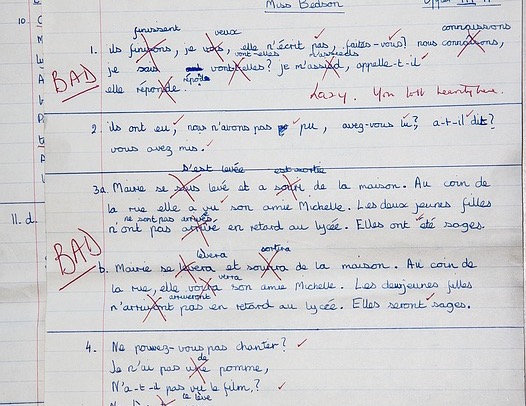 Miss Bedson
10.
finissent veux connaissons
1. ils finissons, je vois, elle n'écrit pas, faites-vous? nous connaisons,
vont-elles m'assieds
je sais vont-elles? je m'assied, appelle-t-il
BAD
répond
elle réponde. Lazy. You both
2. ils ont eu, nous n'avons pas pu, avez-vous lu? a-t-il dit?
vous avez mis.
s'est levée est sortie
3a. Marie se levé et a de la maison. Au coin de
la rue elle a vu son amie Michelle. Les deux jeunes filles
ne sont pas arrivés
11. d. n'ont pas arrivé en retard au lycée. Elles ont été sages.
BAD
levera sortira
b. Marie se levera et sortira de la maison. Au coin de
verra
la rue, elle voira son amie Michelle. Les deux jeunes filles
arriveront
n'arriront pas en retard au lycée. Elles seront sages.
4. Ne pouvez-vous pas chanter?
de
Je n'ai pas une pomme,
N'a-t-il pas vu le film,?
se lève